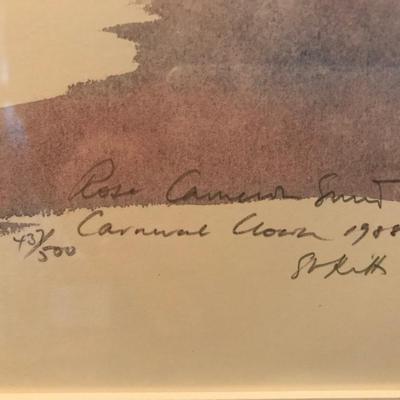 Rose Cameron Smith
43/500 Carnival Clown 1988
St Kitts